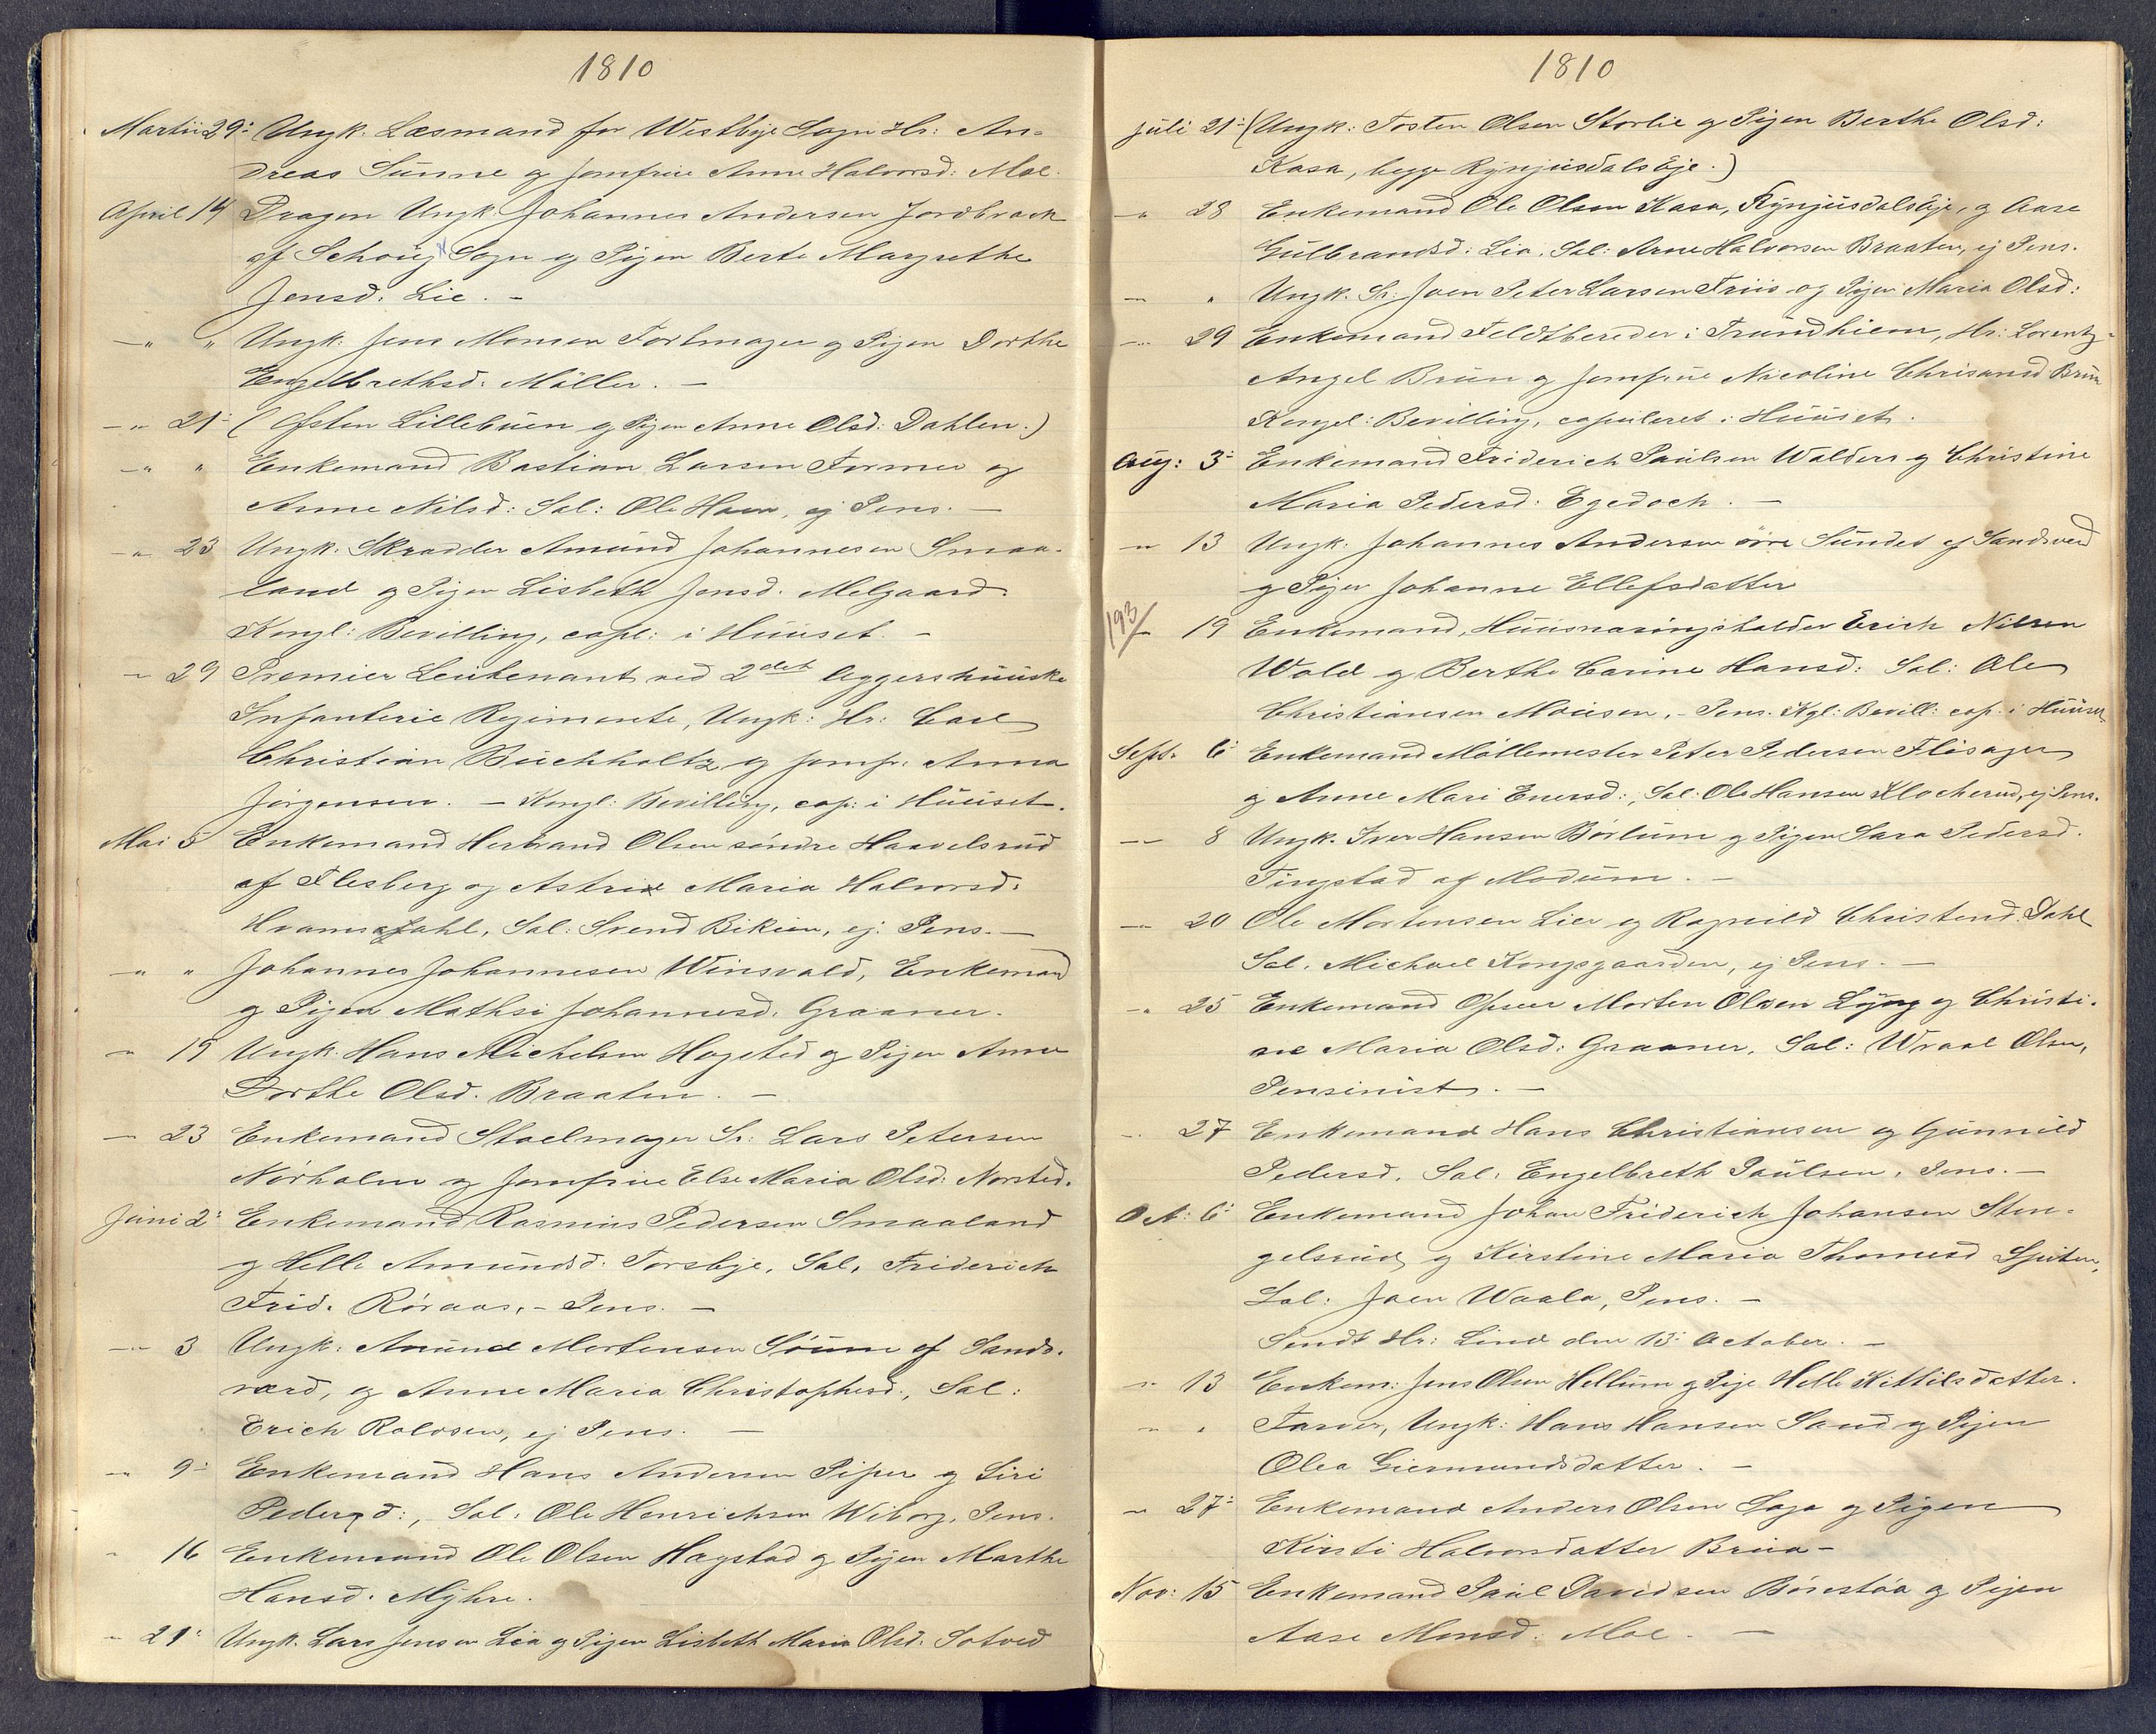 1810
Martii 29: Ungk. Læsmand for Westbye Sogn Hr: An=
dreas Sünne og Jomfrue Anne Halvorsd: Moe.
April 14 Dragon Ungk. Johannes Andersen Jordbræck
af Schoüg Sogn og Pigen Berte Margrethe
Jensd. Lie. –
–„ „ Ungk: Jens Monsen Fortmager og Pigen Dorthe
Engelbrethsd. Möller. –
–„ 21: (Østen Lillebüen og Pigen Anne Olsd: Dahlen.)
–„ „ Enkemand Bastian Larsen Former og
Anne Nilsd: Sal: Ole Haen, ej Pens. –
–„ 23 Ungk. Skrædder Amünd Johannesen Smaa-
land og Pigen Lisbeth Jensd. Melgaard.
Kongl: Bevilling, copl: i Hüüset. –
–„ 29 Premier Leutenant ved 2det Aggershüüske
Infanterie Regimente, Ungk: Hr: Carl
Christian Büchholtz og Jomfr: Anna
Jörgensen. – Kongl: Bevilling, cop: i Hüüset.
Mai 5 Enkemand Herbrand Olsen söndre Haavelsrüd
af Flesberg og Astrix Maria Halvorsd.
Hvamsdahl, Sal: Svend Bikien, ej: Pens. –
–„ „ Johannes Johannesen Winsvold, Enkemand
og Pigen Mathsi Johannesd. Graaner.
–„ 19 Ungk: Hans Michelsen Hagsted og Pigen Anne
Dorthe Olsd. Braaten. –
–„ 23 Enkemand Stoelmager Sr: Lars Petersen
Nörholm og Jomfrue Else Maria Olsd: Norsted.
Jüni 2: Enkemand Rasmüs Pedersen Smaaland
og Helle Amündsd. Torsbye, Sal, Friderich
Frid. Röraas, – Pens. –
–„ 3 Ungk: Amünd Mortensen Söüm af Sands-
værd, og Anne Maria Christophersd:, Sal:
Erich Rolosen, ej Pens. –
–„ 9: Enkemand Hans Andersen Piper og Siri
Pedersd:, Sal: Ole Henrichsen Wiborg, Pens.
„ 16 Enkemand Ole Olsen Hagstad og Pigen Marthe
Hansd. Mÿhre.
–„ 21: Ungk. Lars Jensen Lia og Pigen Lisbeth Maria Olsd. Sotved
1810
Jüli 21: (Ungk: Tosten Olsen Storlie og Pigen Berthe Olsd:
Kasa, begge Rÿnjüsdals Eje.)
–„ 28 Enkemand Ole Olsen Kasa, Rÿnjüsdals Eje, og Aase
Gülbrandsd: Lia, Sal: Arne Halvorsen Braaten, ej Pens.
–„ „ Ungk. Sr: Joen Peter Larsen Friis og Pigen Maria Olsd:
–„ 29 Enkemand Feldtbereder i Trundhiem, Hr: Lorentz
Angel Brün og Jomfrüe Nicoline Chrisansd Brün
Kongel: Bevilling, copuleret i Hüüset.
Aüg: 3: Enkemand Friderich Paülsen Walders og Christine
Maria Pedersd. Egedoch. –
–„ 13 Ungk. Johannes Andersen övre Sündet af Sandsverd
og Pigen Johanne Ellefsdatter
193/ – 19 Enkemand, Hüüsnæringsholder Erich Nilsen
Wold og Berthe Carine Hansd: Sal: Ole
Christiansen Moüsen, – Pens. Kgl: Bevill: cop: i Hüüset
Sept. 6: Enkemand Möllemester Peter Pedersen Flisager
og Anne Mari Enersd:, Sal: Ole Hansen Klocherüd, ej Pens.
–„ 8 Ungk. Iver Hansen Börlüm og Pigen Sara Pedersd.
Tingstad af Modüm. –
–„ 20 Ole Mortensen Lier og Ragnild Christensd. Dahl
Sal. Michael Kongsgaarden, ej Pens. –
–„ 25 Enkemand Opseer Morten Olsen Lÿng og Christi-
ne Maria Olsd: Graaner, Sal: Wraal Olsen,
Pensinist. –
–„ 27 Enkemand Hans Christiansen og Günnild
Pedersd, Sal: Engelbreth Paülsen, Pens. –
Oct: 6: Enkemand Johan Friderich Johansen Sten-
gelsrüd og Kirstine Maria Thomesd Spiten,
Sal: Joen Waala, Pens. –
Sendt Hr: Lind den 13: October. –
–„ 13 Enkem: Jens Olsen Hellüm og Pige Helle Kittilsdatter.
–„ „ Farver, Ungk: Hans Hansen Sand og Pigen
Olea Giermundsdatter. –
–„ 27: Enkemand Anders Olsen Saga og Pigen
Kirsti Halvorsdatter Brüa –
Nov: 15 Enkemand Paül Davidsen Börestöa og Pigen
Aase Monsd. Moe. –